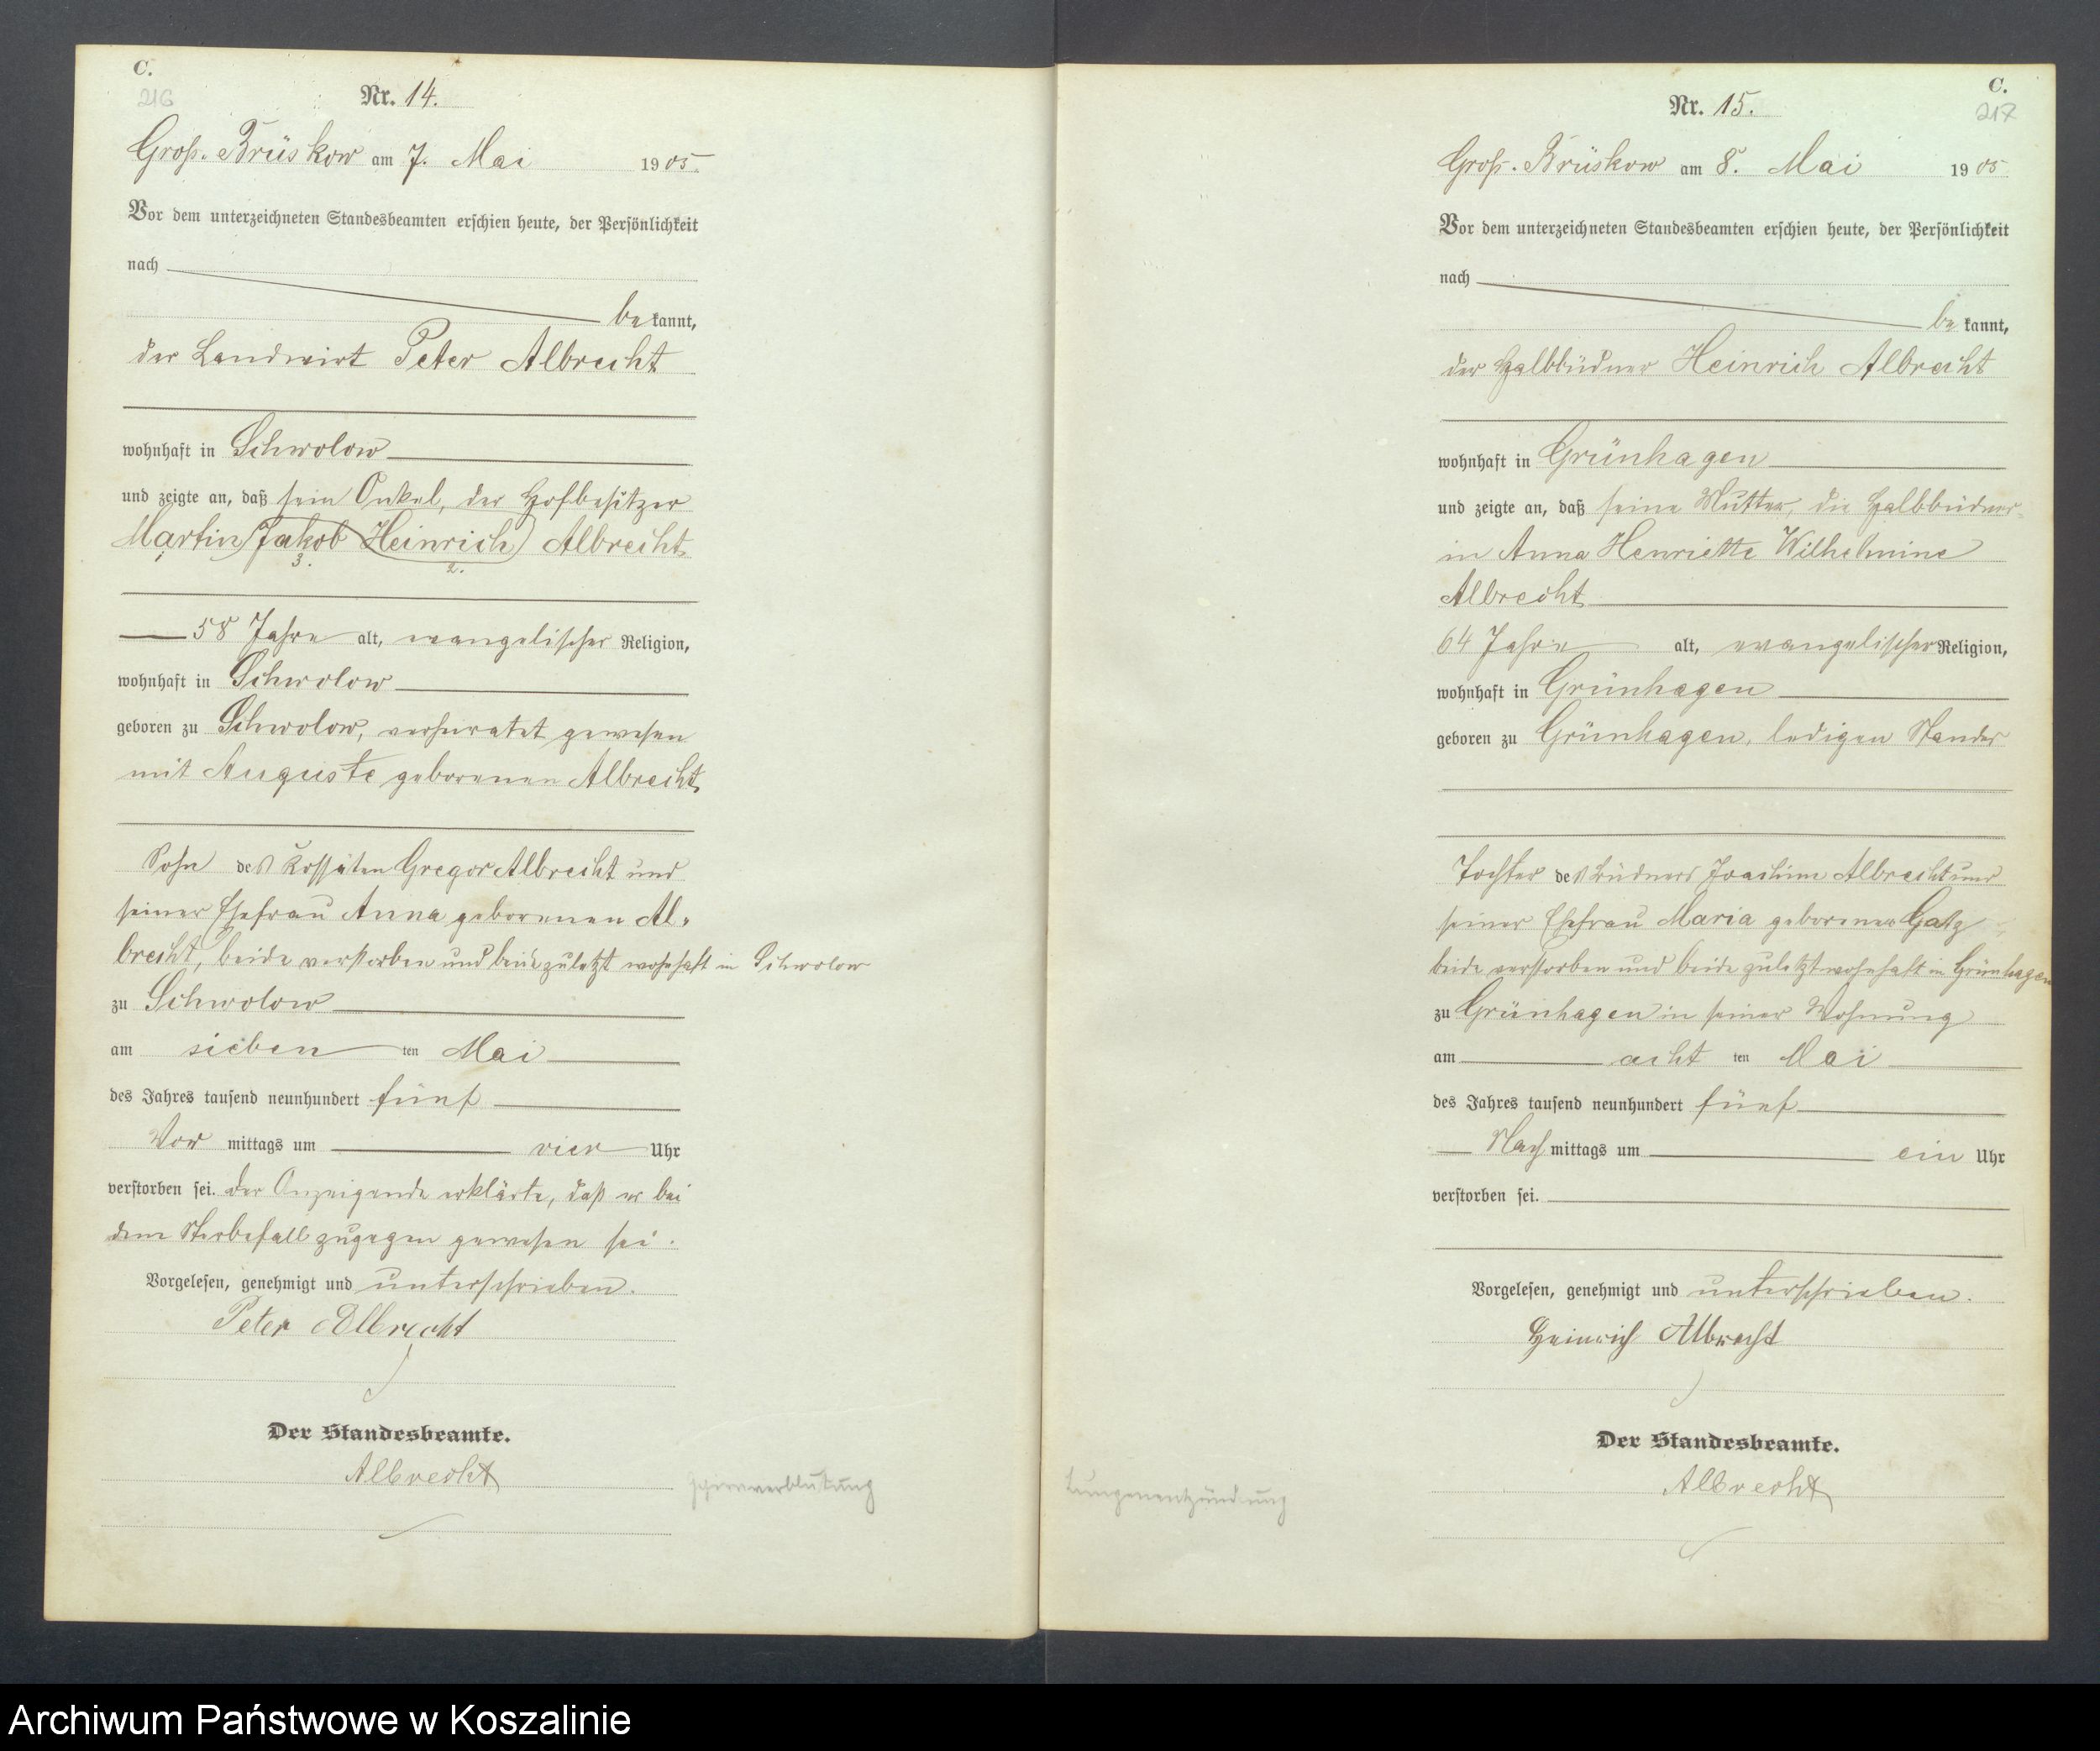 C.
216
Nr. 14.
Groß-Brüskow am 7. Mai 1905.
Vor dem unterzeichneten Standesbeamten erschien heute, der Persönlichkeit
nach
bekannt,
der Landwirt Peter Albrecht
wohnhaft in Schwolow
und zeigte an, daß sein Onkel, der Hofbesitzer
Martin Jakob Heinrich Albrecht
1. 3. 2.
58 Jahre alt, evangelischer Religion,
wohnhaft in Schwolow
geboren zu Schwolow, verheiratet gewesen
mit Auguste geborenen Albrecht
Sohn des Kossäten Gregor Albrecht und
seiner Ehefrau Anna geborenen Al-
brecht, beide verstorben und beide zuletzt wohnhaft in Schwolow
zu Schwolow
am sieben ten Mai
des Jahres tausend neunhundert fünf
Vor mittags um vier Uhr
verstorben sei. Der Anzeigende erklärte, daß er bei
dem Sterbefall zugegen gewesen sei.
Vorgelesen, genehmigt und unterschrieben.
Peter Albrecht
Der Standesbeamte.
Albrecht
C.
217
Nr. 15.
Groß-Brüskow am 8. Mai 1905
Vor dem unterzeichneten Standesbeamten erschien heute, der Persönlichkeit
nach
bekannt,
der Halbbüdner Heinrich Albrecht
wohnhaft in Grünhagen
und zeigte an, daß seine Mutter, die Halbbüdner-
in Anna Henriette Wilhelmine
Albrecht
64 Jahre alt, evangelischer Religion,
wohnhaft in Grünhagen
geboren zu Grünhagen, ledigen Standes
Tochter des Büdners Joachim Albrecht und
seiner Ehefrau Maria geborenen Gatz
beide verstorben und beide zuletzt wohnhaft in Grünhagen
zu Grünhagen in seiner Wohnung
am acht ten Mai
des Jahres tausend neunhundert fünf
Nach mittags um ein Uhr
verstorben sei.
Vorgelesen, genehmigt und unterschrieben.
Heinrich Albrecht
Der Standesbeamte.
Albrecht
Lungenentzündung
Archiwum Państwowe w Koszalinie